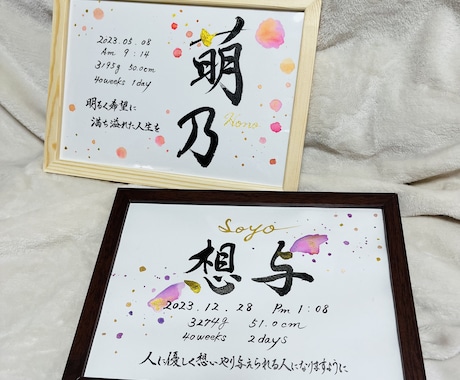 萌乃
Hono
2023.05.08
Am 9:14
3195g 50.0cm
40weeks 1day
明るく希望に
満ち溢れた人生を
Soyo
想与
2023.12.28 Pm 1:08
3274g 51.0cm
40weeks 2days
人に優しく想いやり与えられる人になりますように